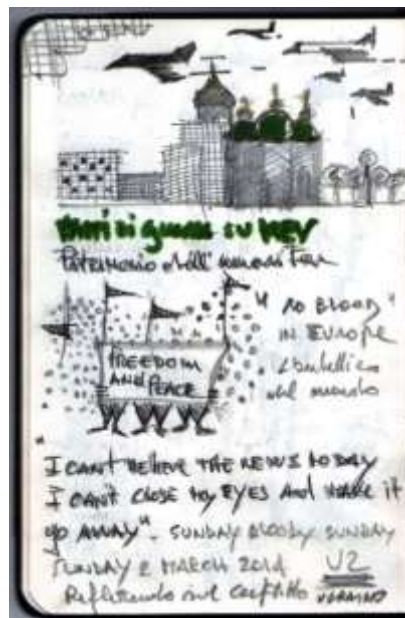 VENTI DI GUERRA SU KIEV
PATRIMONIO dell' umanità
FREEDOM
AND PEACE
"NO BLOOD"
IN EUROPE
e
nel mondo
"I CAN'T BELIEVE THE NEWS TODAY
I CAN'T CLOSE MY EYES AND MAKE IT
GO AWAY". SUNDAY BLOODY SUNDAY
SUNDAY 2 MARCH 2014 U2
Riflettendo sul conflitto UCRAINO